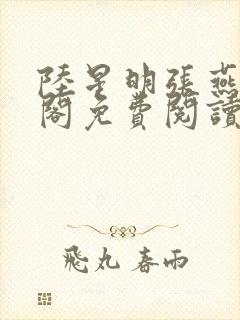 陸星明張燕
閣免費閱讀
飛丸春雨